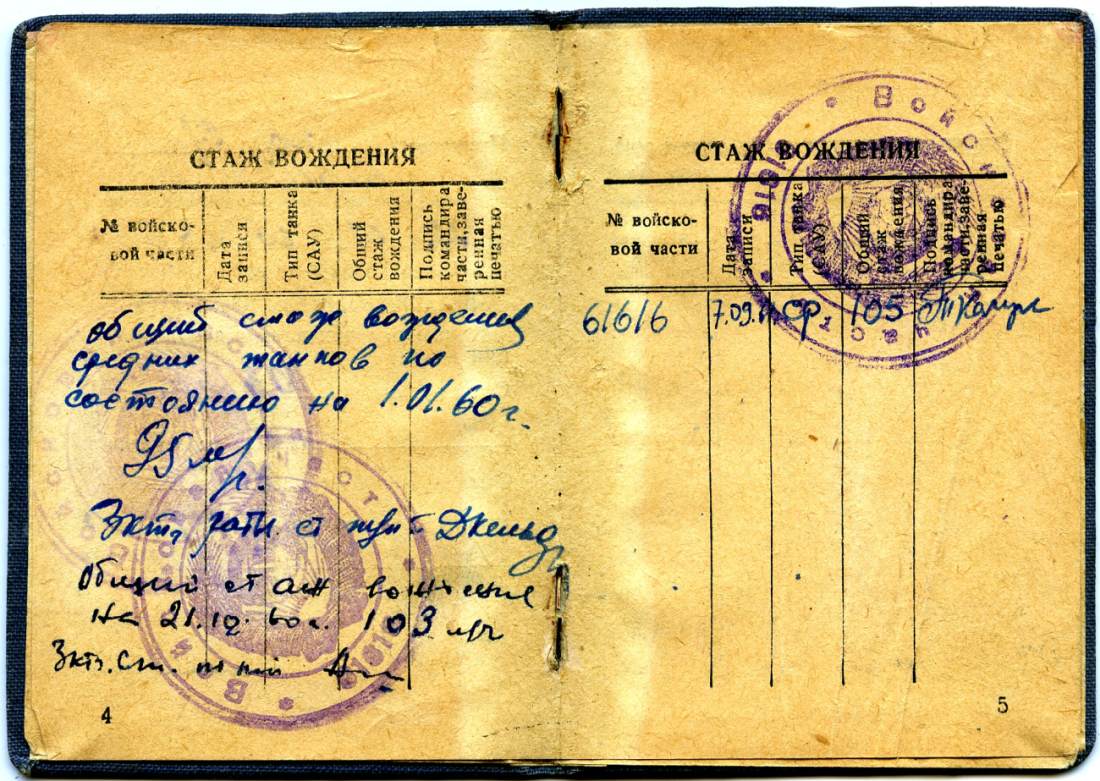 СТАЖ ВОЖДЕНИЯ
№ войско-
вой части
Дата
записи
Тип танка
(САУ)
Общий
стаж
вождения
Подпись
командира
части, заве-
ренная
печатью
общий стаж вождения
средних танков по
состоянию на 1.01.60 г.
95
Общий стаж вождения
на 103
4
СТАЖ ВОЖДЕНИЯ
№ войско-
вой части
Дата
записи
Тип танка
(САУ)
Общий
стаж
вождения
Подпись
командира
части, заве-
ренная
печатью
61616 7.09. Ср. 105
5